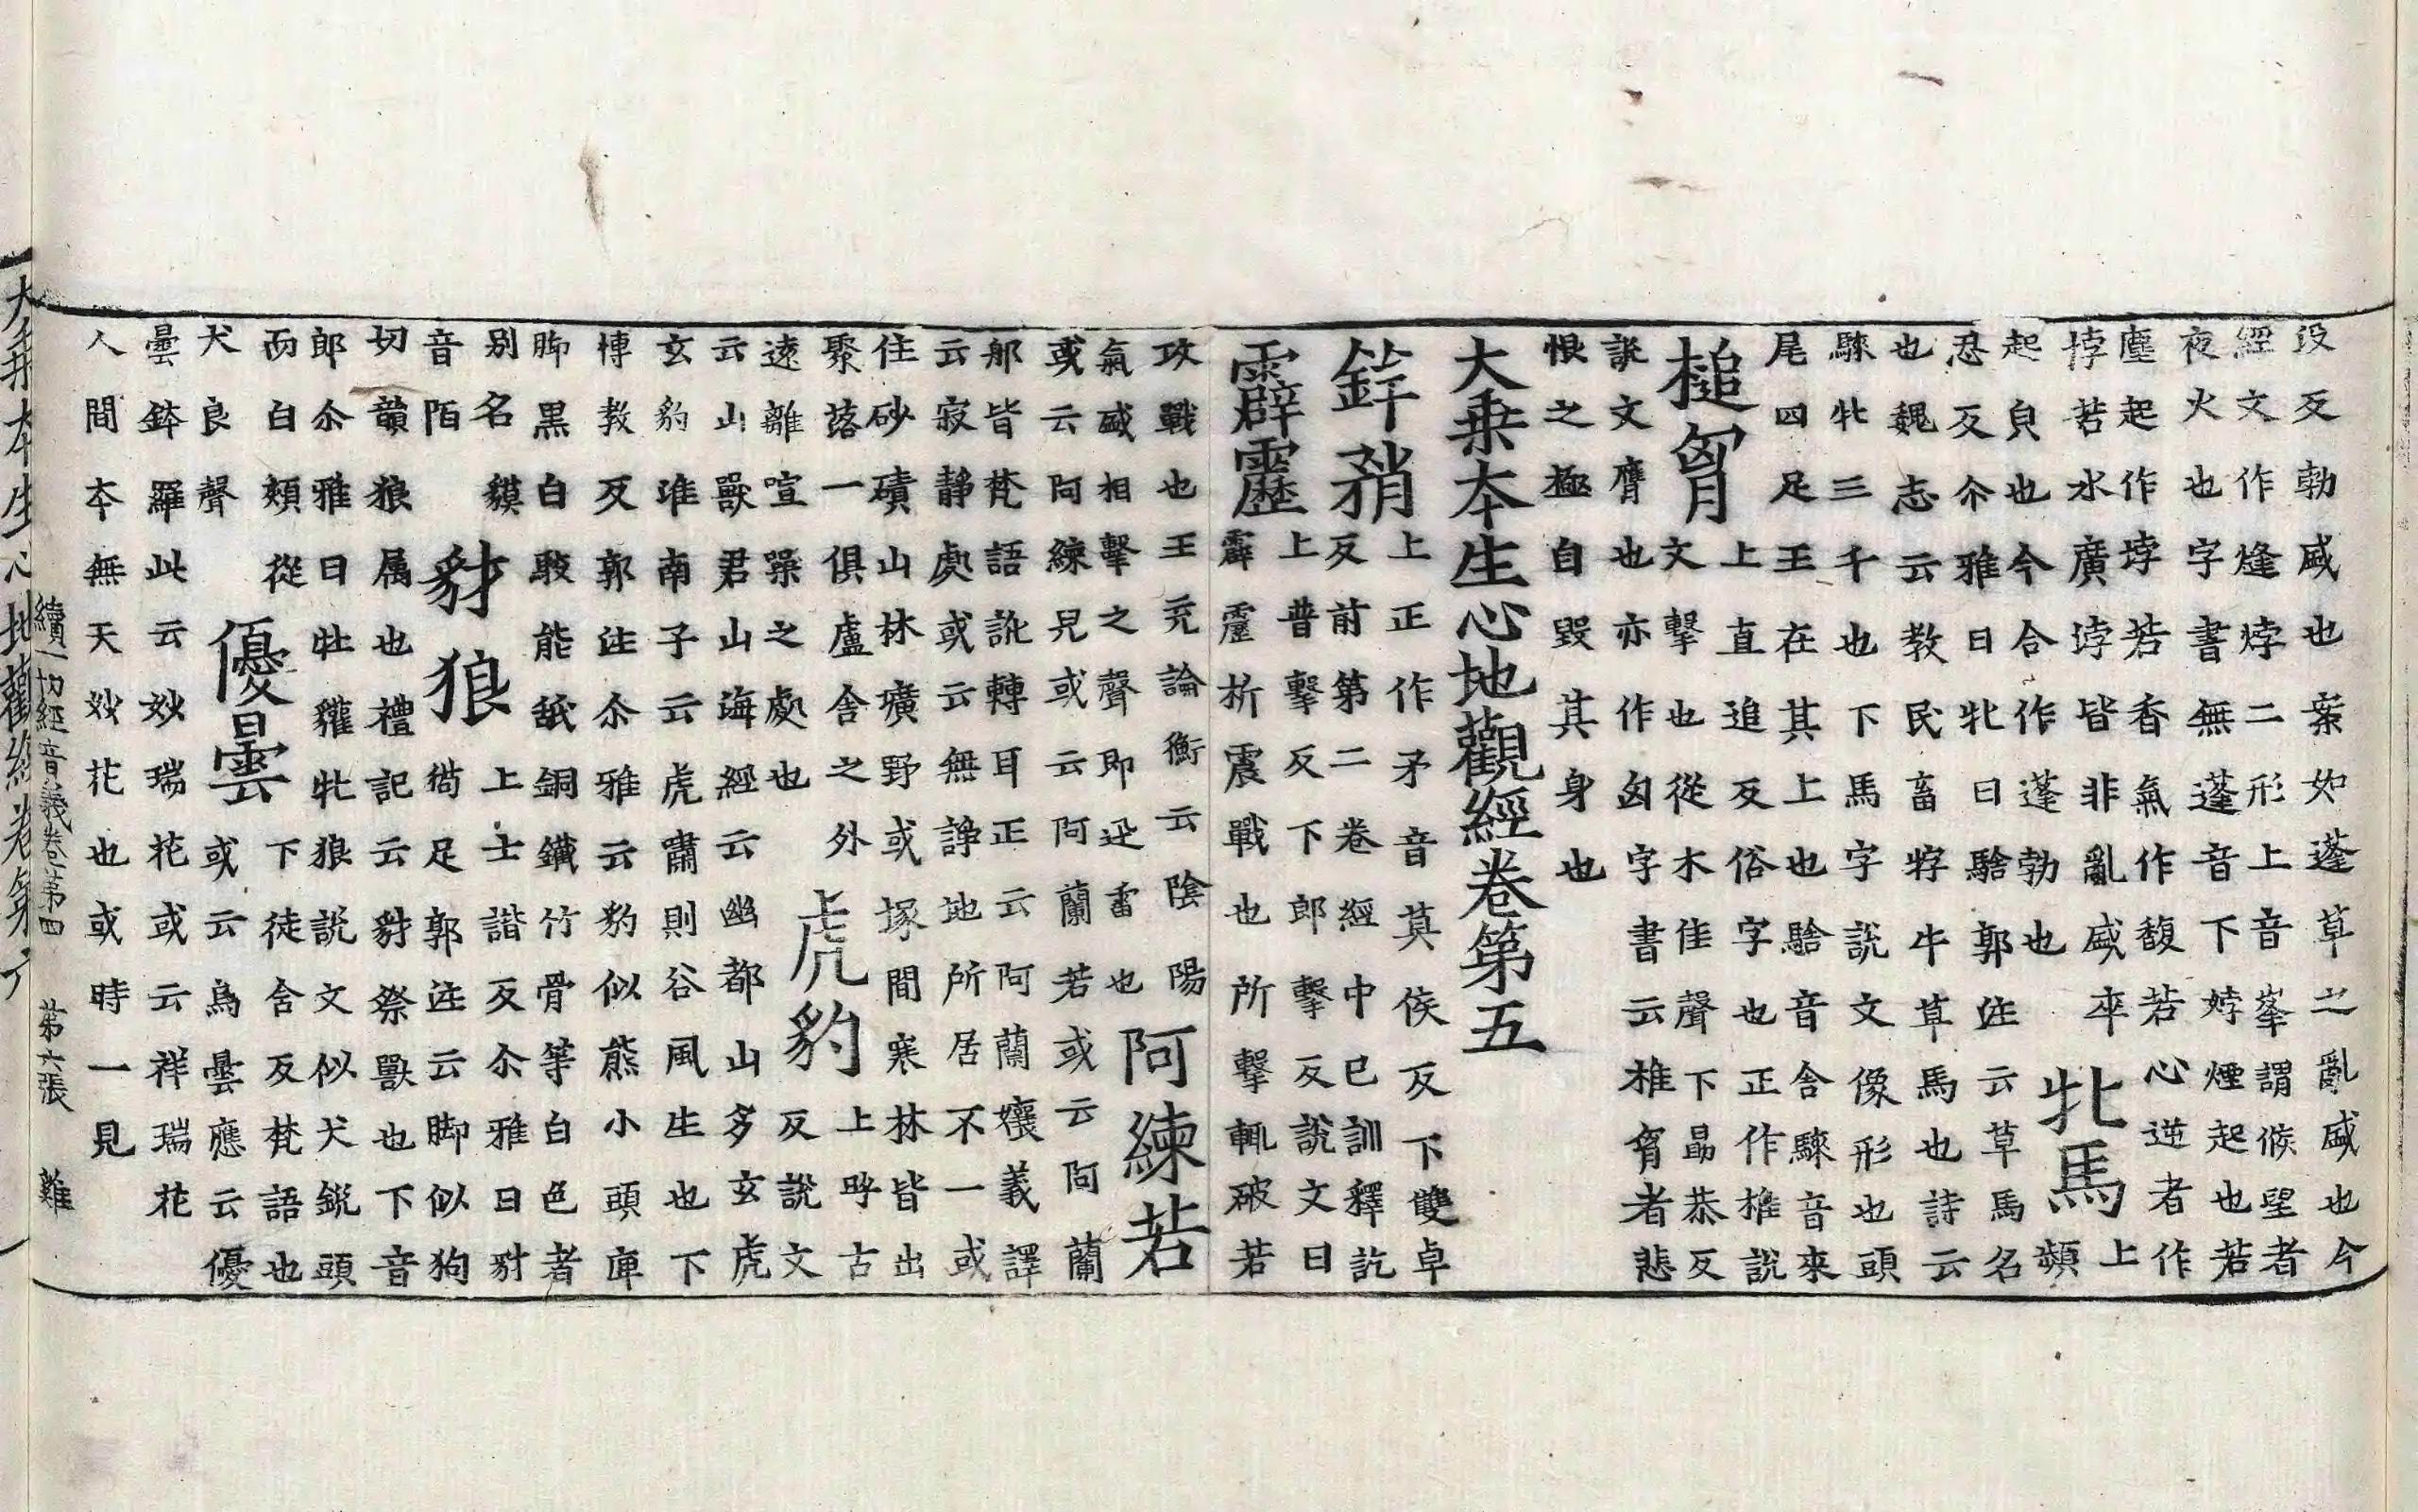 没反勃盛也案如蓬草之亂盛也今
經文作熢㶿二形上音峯謂候望者
夜火也字書無蓬音下㶿煙起也若
塵起作埻若香氣作馥若心逆者作
悖若水廣浡皆非亂盛卒
起貟也今合作蓬勃也
牝馬
上
顮
忍反尒雅曰牝曰騇郭注云草馬名
也魏志云教民畜牸牛草馬也詩云
騋牝三千也下馬字說文像形也頭
尾四足王在其上也騇音舍騋音來
槌胷
上直追反俗字也正作椎說
文擊也從木隹聲下勗恭反
說文膺也亦作匈字書云椎胷者悲
恨之極自毀其身也
大乗夲生心地觀經卷第五
鉾矟
上正作矛音莫侯反下雙卓
反前第二卷經中已訓釋訖
霹靂
上普擊反下郎擊反說文曰
霹靂析震戰也所擊輒破若
攻戰也王充論衡云陰陽
氣盛相擊之聲即迅雷也
阿練若
或云阿練兒或云阿蘭若或云阿蘭
那皆梵語訛轉耳正云阿蘭孃義譯
云寂静處或云無諍地所居不一或
住砂磧山林壙野或塚間寒林皆出
聚落一俱盧舍之外
遠離喧躁之處也
虎豹
上呼古
反說文
云山獸君山海經云幽都山多玄虎
玄豹淮南子云虎嘯則谷風生也下
博教反郭注尒雅云豹似熊小頭庳
脚黑白駮能舐銅鐵竹骨等白色者
别名貘
音陌
豺狼
上士諧反尒雅曰豺
㺃足郭注云脚似狗
切韻狼属也禮記云豺祭獸也下音
郎尒雅曰牡獾牝狼說文似犬銳頭
而白頰從
犬良聲
優曇
下徒含反梵語也
或云烏曇應云優
曇鉢羅此云妙瑞花或云祥瑞花
人間夲無天妙花也或時一見
續一切經音義卷第四 第六張 難
大乗夲生心地觀經卷第六